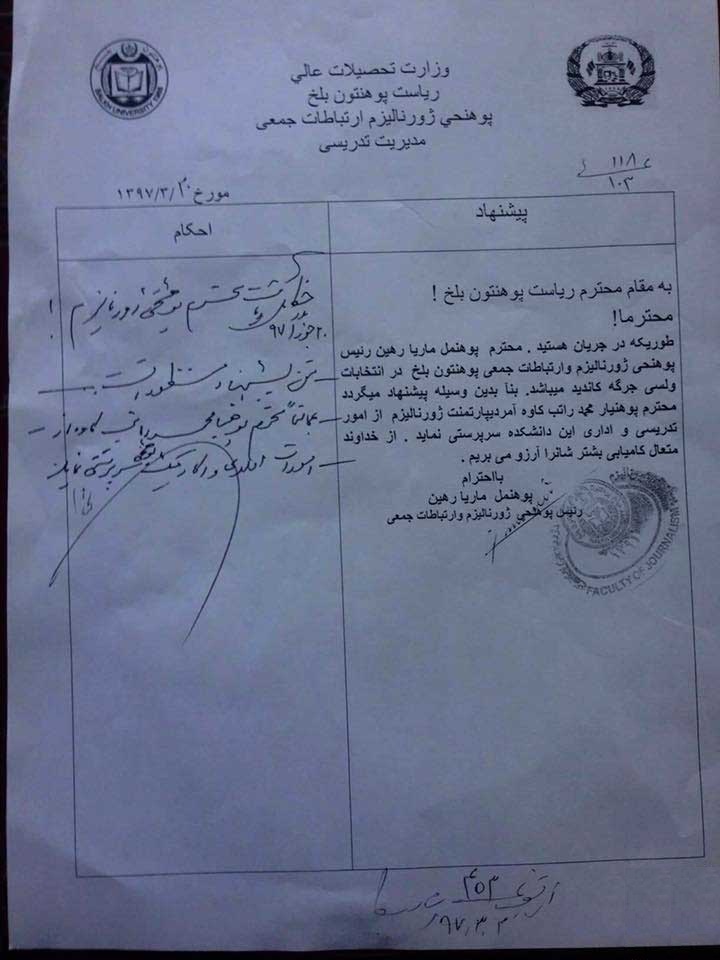 وزارت تحصیلات عالي
ریاست پوهنتون بلخ
پوهنحي ژورنالیزم ارتباطات جمعی
مدیریت تدریسی
BALKH UNIVERSITY 1986
۱۱۸
۱۰۳
مورخ ۱۳۹۷/۳/۲۰
پیشنهاد
به مقام محترم ریاست پوهنتون بلخ !
محترما!
طوریکه در جریان هستید . محترم پوهنمل ماریا رهین رئیس
پوهنحی ژورنالیزم وارتباطات جمعی پوهنتون بلخ در انتخابات
ولسی جرگه کاندید میباشد. بنا بدین وسیله پیشنهاد میگردد
محترم پوهنیار محمد راتب کاوه آمردیپارتمنت ژورنالیزم از امور
تدریسی و اداری این دانشکده سرپرستی نماید . از خداوند
متعال کامیابی بشتر شانرا آرزو می بریم .
بااحترام
پوهنمل ماریا رهین
رئیس پوهنحي ژورنالیزم وارتباطات جمعی
FACULTY OF JOURNALISM
احکام
محترم پوهنحی ژورنالیزم !
متن پیشنهاد منظور است
محترم
سرپرستی نماید
۴۵۳